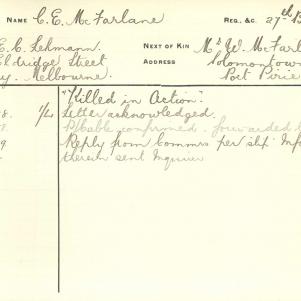 NAME C. E. McFarlane REG. &C. 27th B
E. C. Lehmann. NEXT OF KIN Mr W. McFarl
Eldridge Street ADDRESS Solomontown
y. Melbourne. Port Pirie
"Killed in Action".
8. 1/4 Letter acknowledged.
8. confirmed. forwarded
9 Reply from Commrs per slip Inf
therein sent Inquirer